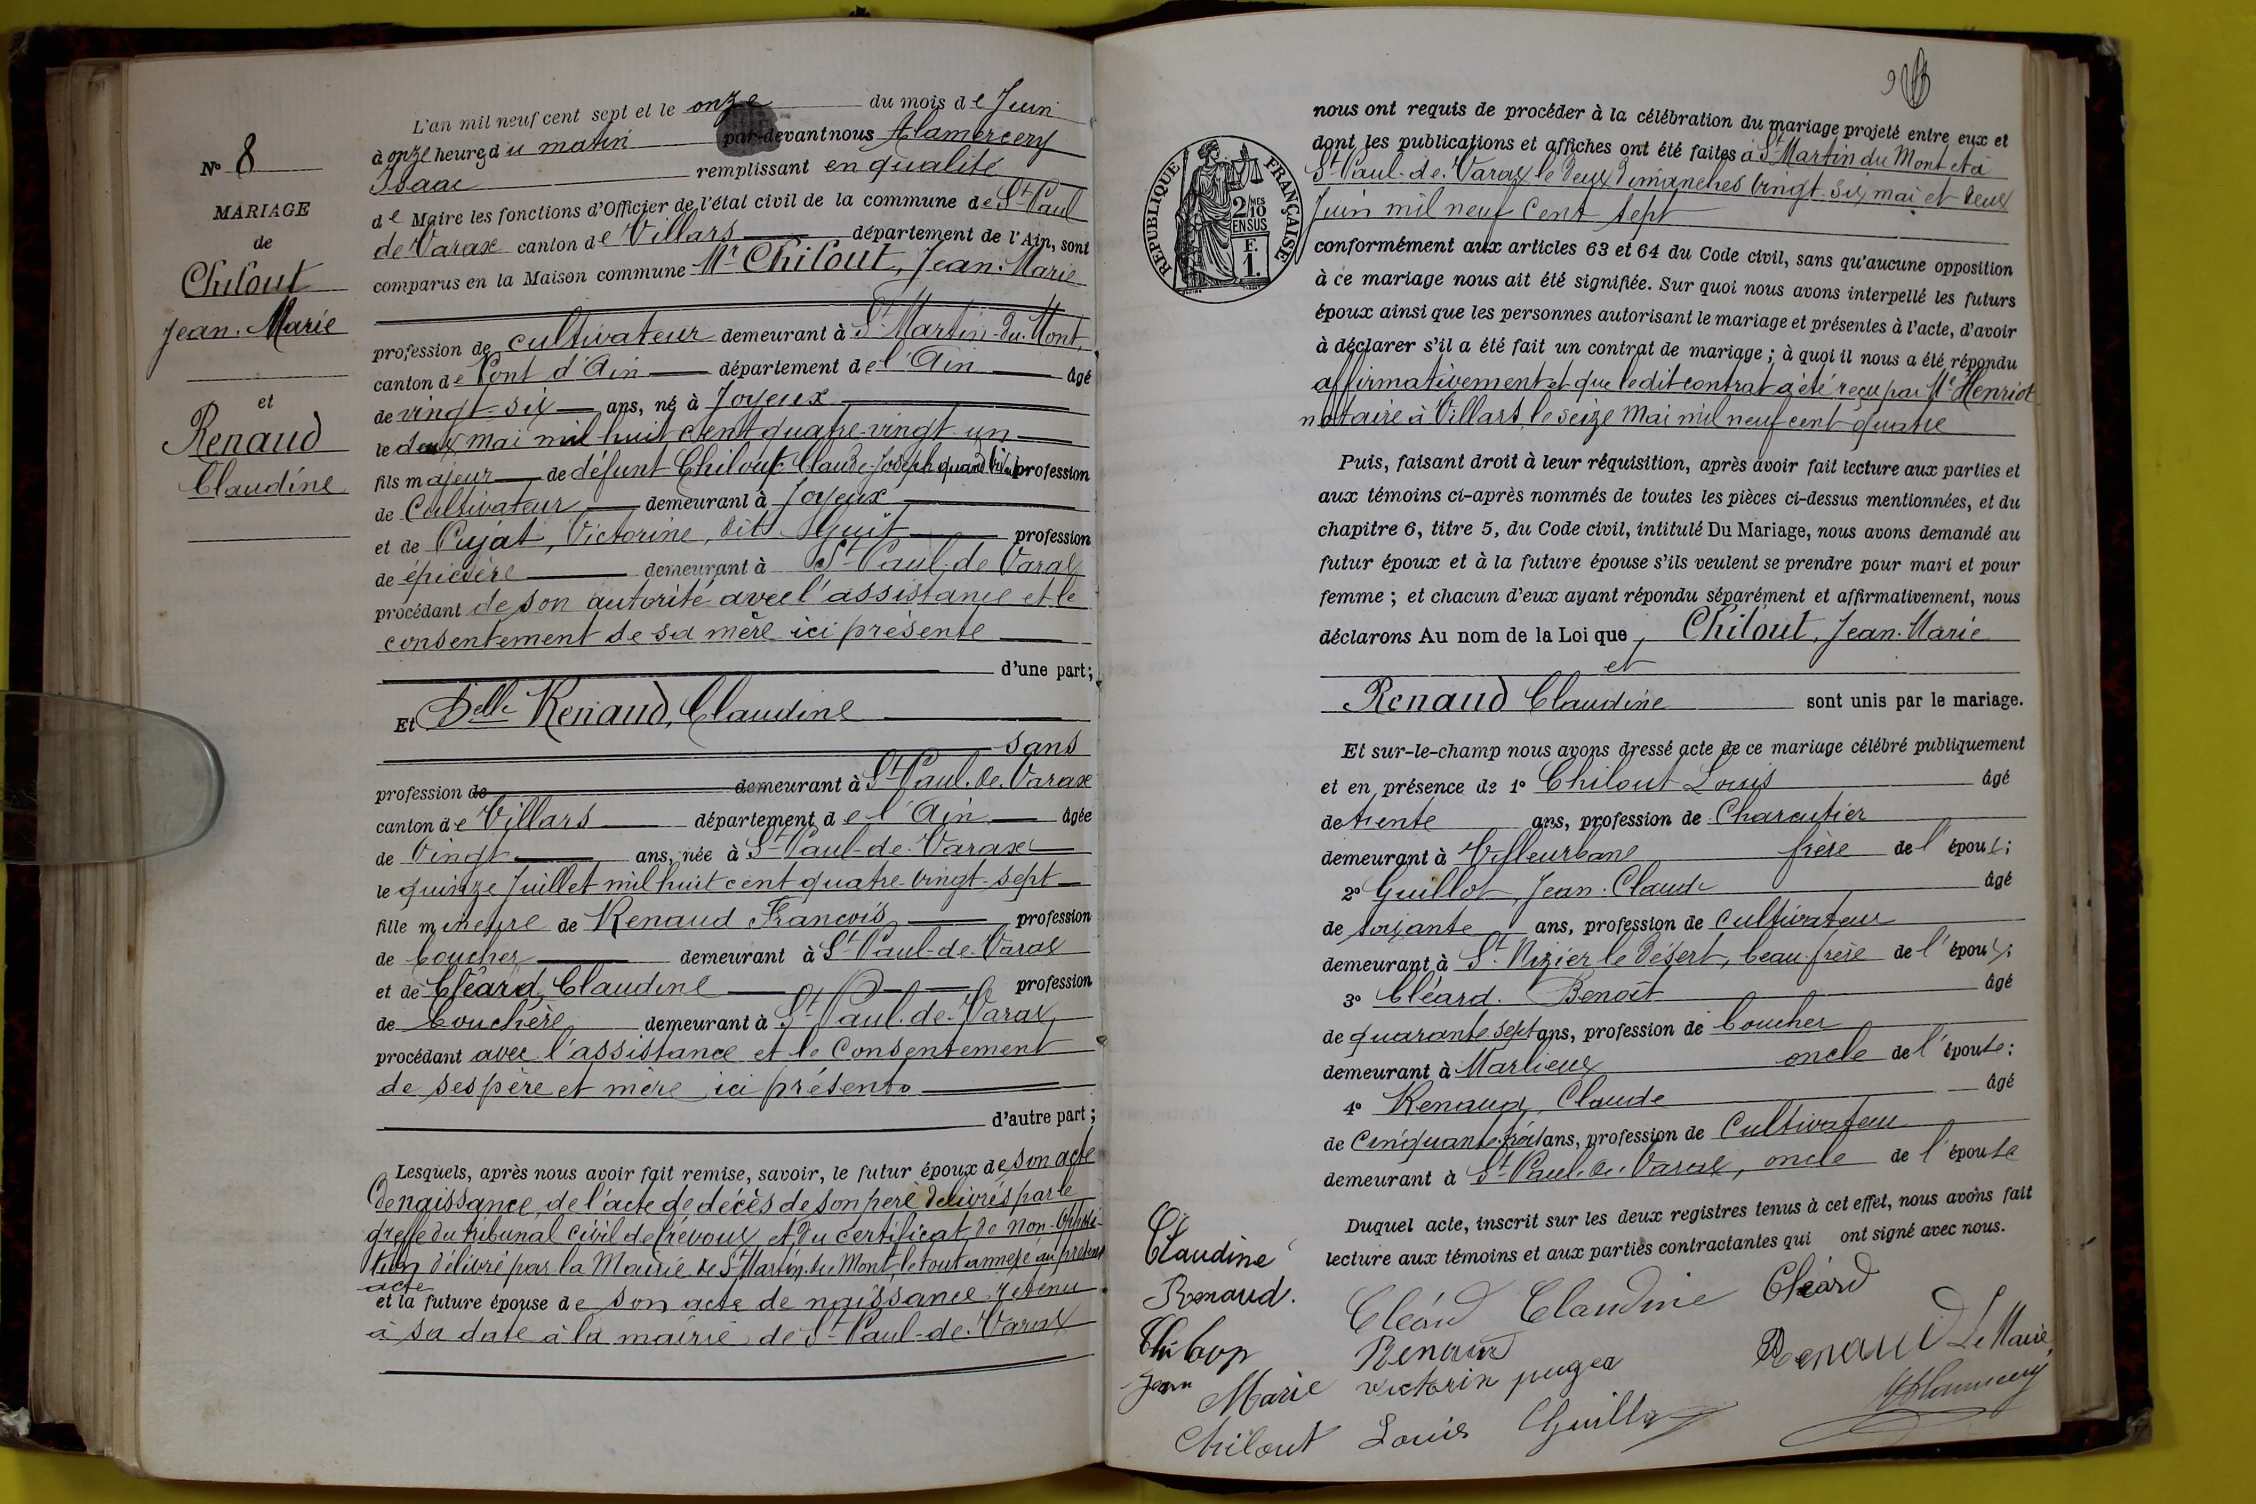 L'an mil neuf cent sept et le onze du mois de Juin
à onze heures du matin par-devant nous Alamercery
Isaac remplissant en qualité
de Maire les fonctions d'Officier de l'état civil de la commune de St Paul
de Varax canton de Villars département de l'Ain, sont
comparus en la Maison commune Mr Chilout, Jean-Marie
profession de cultivateur demeurant à St Martin-du-Mont,
canton de Pont d'Ain département de l'Ain âgé
de vingt-six ans, né à Joyeux
le deux mai mil huit cent quatre-vingt-un
fils majeur de défunt Chilout Claude Joseph quand vivait profession
de Cultivateur demeurant à Joyeux
et de Pujat, Victorine, dit Guit profession
de épicière demeurant à St Paul-de-Varax
procédant de son autorité avec l'assistance et le
consentement de sa mère ici présente
d'une part;
Et Delle Renaud, Claudine
sans
profession de demeurant à St Paul-de-Varax
canton de Villars département de l'Ain âgée
de vingt ans, née à St Paul-de-Varax
le quinze Juillet mil huit cent quatre-vingt-sept
fille mineure de Renaud François profession
de boucher demeurant à St Paul-de-Varax
et de Cléard, Claudine profession
de bouchère demeurant à St Paul-de-Varax,
procédant avec l'assistance et le consentement
de ses père et mère ici présents
d'autre part;
Lesquels, après nous avoir fait remise, savoir, le futur époux de son acte
de naissance, de l'acte de décès de son père délivrés par le
greffe du tribunal civil de Trévoux et du certificat de non-opposi-
tion délivré par la Mairie de St Martin-du-Mont, le tout annexé au présent
acte
et la future épouse de son acte de naissance retenu
à sa date à la mairie de St Paul-de-Varax
No 8
MARIAGE
de
Chilout
Jean-Marie
et
Renaud
Claudine
9
RÉPUBLIQUE FRANÇAISE
2/10 MES
EN SUS
F.
1.
nous ont requis de procéder à la célébration du mariage projeté entre eux et
dont les publications et affiches ont été faites à St Martin du Mont et à
St Paul-de-Varax le deux Dimanches vingt-six mai et deux
Juin mil neuf cent sept
conformément aux articles 63 et 64 du Code civil, sans qu'aucune opposition
à ce mariage nous ait été signifiée. Sur quoi nous avons interpellé les futurs
époux ainsi que les personnes autorisant le mariage et présentes à l'acte, d'avoir
à déclarer s'il a été fait un contrat de mariage; à quoi il nous a été répondu
affirmativement et que le dit contrat a été reçu par Me Henriot
notaire à Villars, le seize Mai mil neuf cent quatre
Puis, faisant droit à leur réquisition, après avoir fait lecture aux parties et
aux témoins ci-après nommés de toutes les pièces ci-dessus mentionnées, et du
chapitre 6, titre 5, du Code civil, intitulé Du Mariage, nous avons demandé au
futur époux et à la future épouse s'ils veulent se prendre pour mari et pour
femme; et chacun d'eux ayant répondu séparément et affirmativement, nous
déclarons Au nom de la Loi que, Chilout, Jean-Marie
et
Renaud Claudine sont unis par le mariage.
Et sur-le-champ nous avons dressé acte de ce mariage célébré publiquement
et en présence de 1o Chilout Louis âgé
de trente ans, profession de Charcutier
demeurant à Villeurbane frère de l'époux;
2o Guillot, Jean-Claude âgé
de soixante ans, profession de cultivateur
demeurant à St Nizier le Désert, beau-frère de l'époux;
3o Cléard. Benoît âgé
de quarante sept ans, profession de boucher
demeurant à Marlieux oncle de l'épouse;
4o Renaud, Claude âgé
de cinquante-trois ans, profession de Cultivateur
demeurant à St Paul-de-Varax, oncle de l'épouse
Duquel acte, inscrit sur les deux registres tenus à cet effet, nous avons fait
lecture aux témoins et aux parties contractantes qui ont signé avec nous.
Claudine
Renaud.
Cléard Claudine Cléard
Renaud Renaud Le Maire,
Jean Marie victorin pugea
Chilout Louis Guillot Alamercery